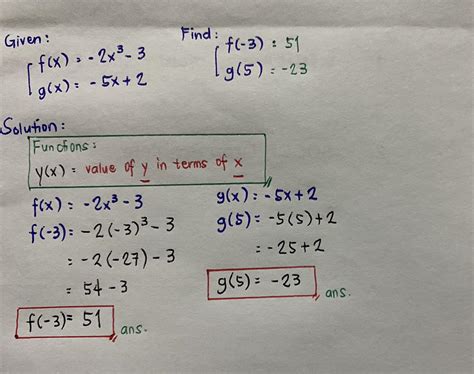 Given:
f(x) = -2x³ - 3
g(x) = -5x + 2
Find:
f(-3) = 51
g(5) = -23
Solution:
Functions:
y(x) = value of y in terms of x
f(x) = -2x³ - 3
f(-3) = -2(-3)³ - 3
= -2(-27) - 3
= 54 - 3
f(-3) = 51 ans.
g(x) = -5x + 2
g(5) = -5(5) + 2
= -25 + 2
g(5) = -23 ans.